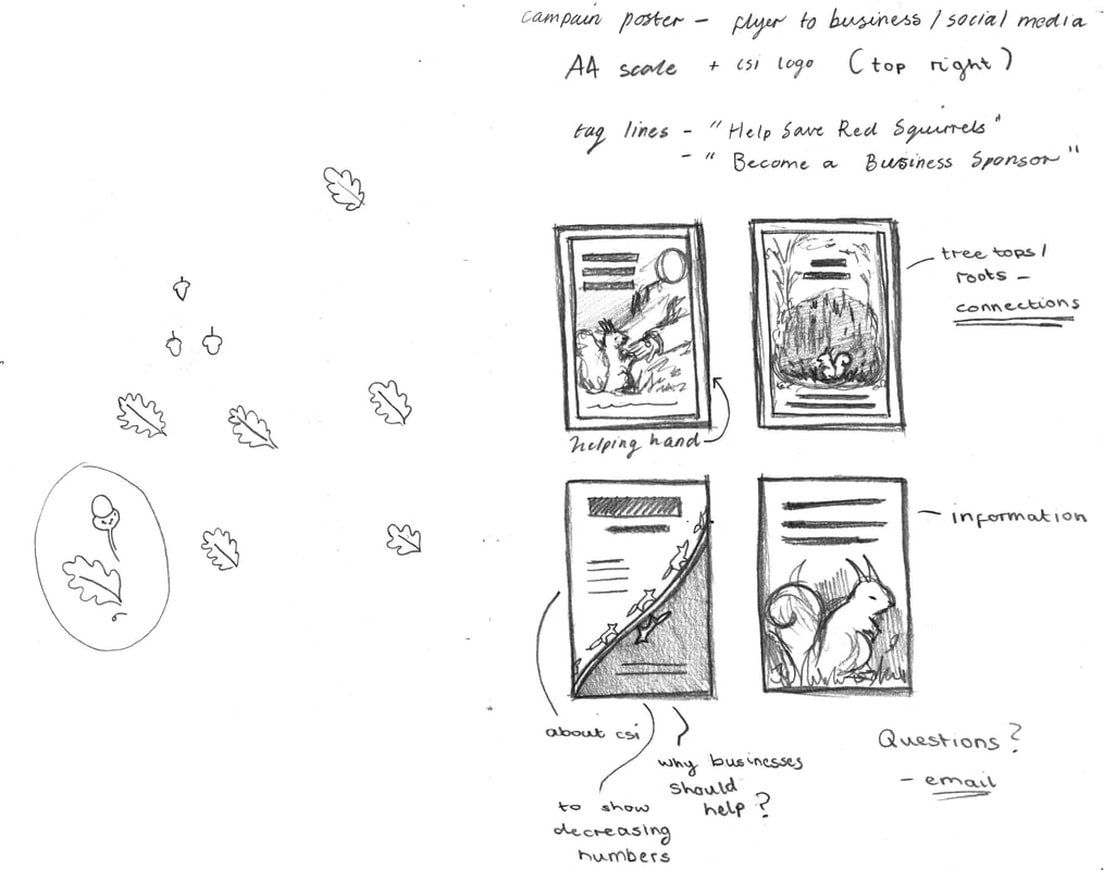 campain poster - flyer to business / social media
A4 scale + csi logo (top right)
tag lines - "Help Save Red Squirrels"
- "Become a Business Sponsor"
tree tops /
roots -
connections
helping hand
- information
about csi
why businesses
should
help?
to show
decreasing
numbers
Questions?
- email